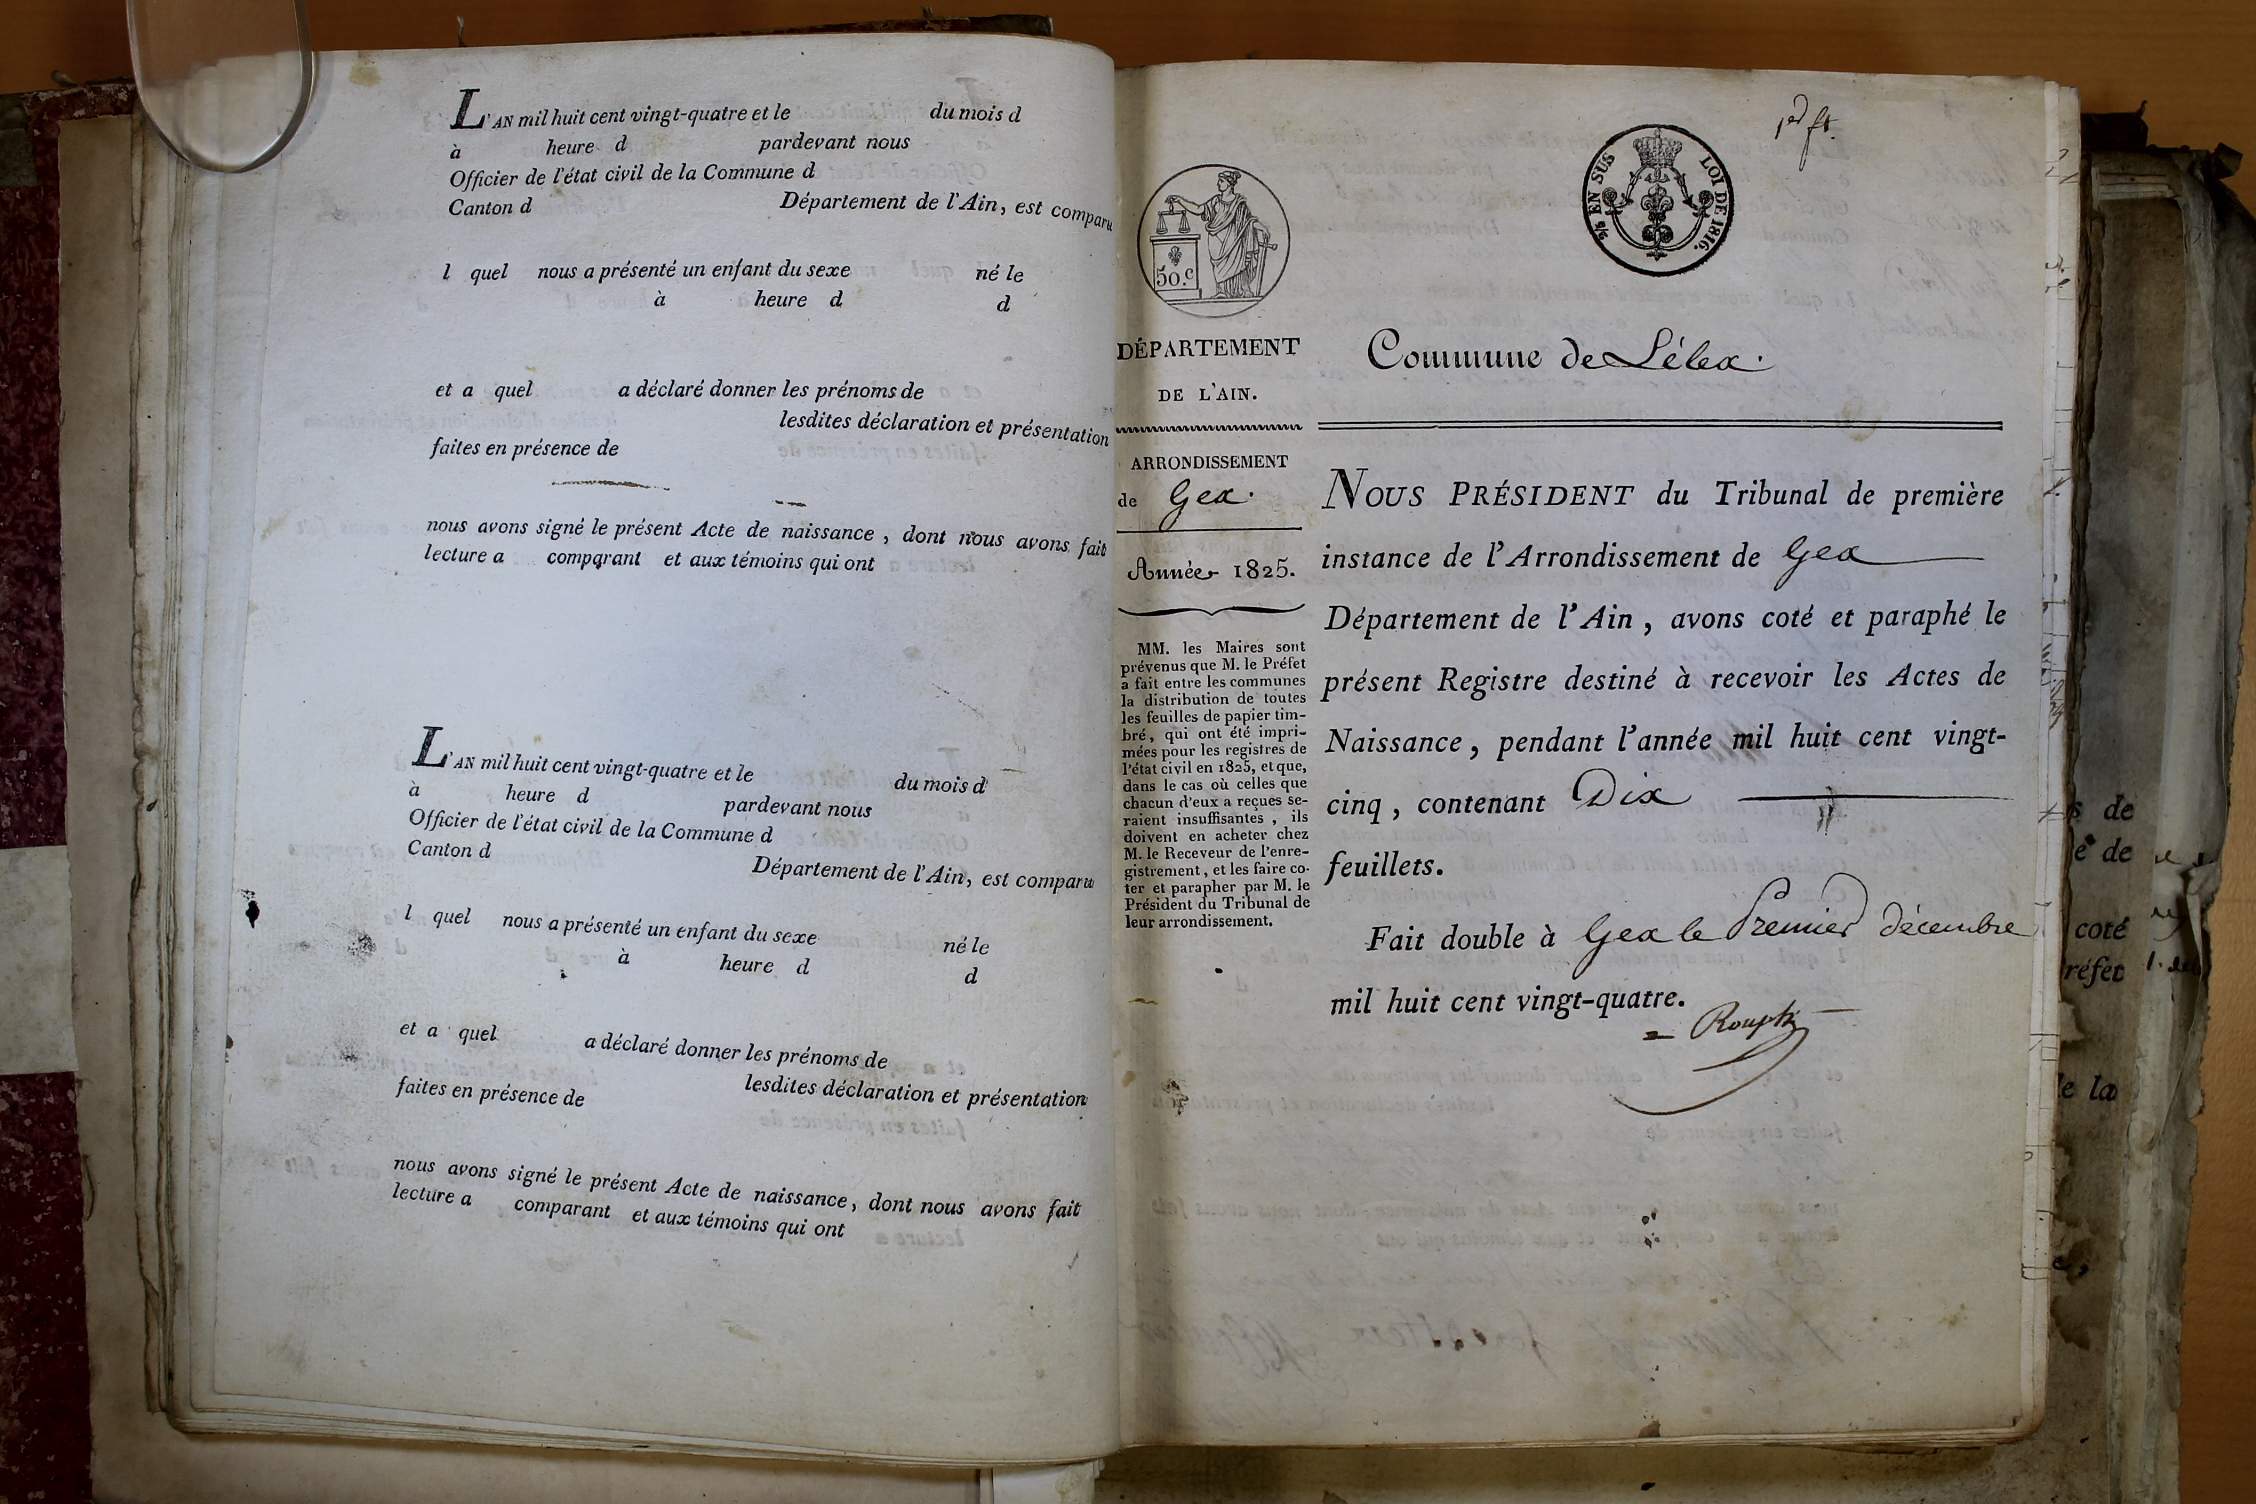 L'AN mil huit cent vingt-quatre et le du mois d
à heure d pardevant nous
Officier de l'état civil de la Commune d
Canton d Département de l'Ain, est comparu
l quel nous a présenté un enfant du sexe né le
à heure d d
et a quel a déclaré donner les prénoms de
lesdites déclaration et présentation
faites en présence de
nous avons signé le présent Acte de naissance, dont nous avons fait
lecture a comparant et aux témoins qui ont
L'AN mil huit cent vingt-quatre et le du mois d
à heure d pardevant nous
Officier de l'état civil de la Commune d
Canton d Département de l'Ain, est comparu
l quel nous a présenté un enfant du sexe né le
à heure d d
et a quel a déclaré donner les prénoms de
lesdites déclaration et présentation
faites en présence de
nous avons signé le présent Acte de naissance, dont nous avons fait
lecture a comparant et aux témoins qui ont
1er ft.
EN SUS LOI DE 1816.
50.c
DÉPARTEMENT
DE L'AIN.
ARRONDISSEMENT
de Gex.
Année 1825.
MM. les Maires sont
prévenus que M. le Préfet
a fait entre les communes
la distribution de toutes
les feuilles de papier tim-
bré, qui ont été impri-
mées pour les registres de
l'état civil en 1825, et que,
dans le cas où celles que
chacun d'eux a reçues se-
raient insuffisantes, ils
doivent en acheter chez
M. le Receveur de l'enre-
gistrement, et les faire co-
ter et parapher par M. le
Président du Tribunal de
leur arrondissement.
Commune de Lélex.
NOUS PRÉSIDENT du Tribunal de première
instance de l'Arrondissement de Gex
Département de l'Ain, avons coté et paraphé le
présent Registre destiné à recevoir les Actes de
Naissance, pendant l'année mil huit cent vingt-
cinq, contenant Dix
feuillets.
Fait double à Gex le Premier décembre
mil huit cent vingt-quatre.
de
de
coté
réfet
de la